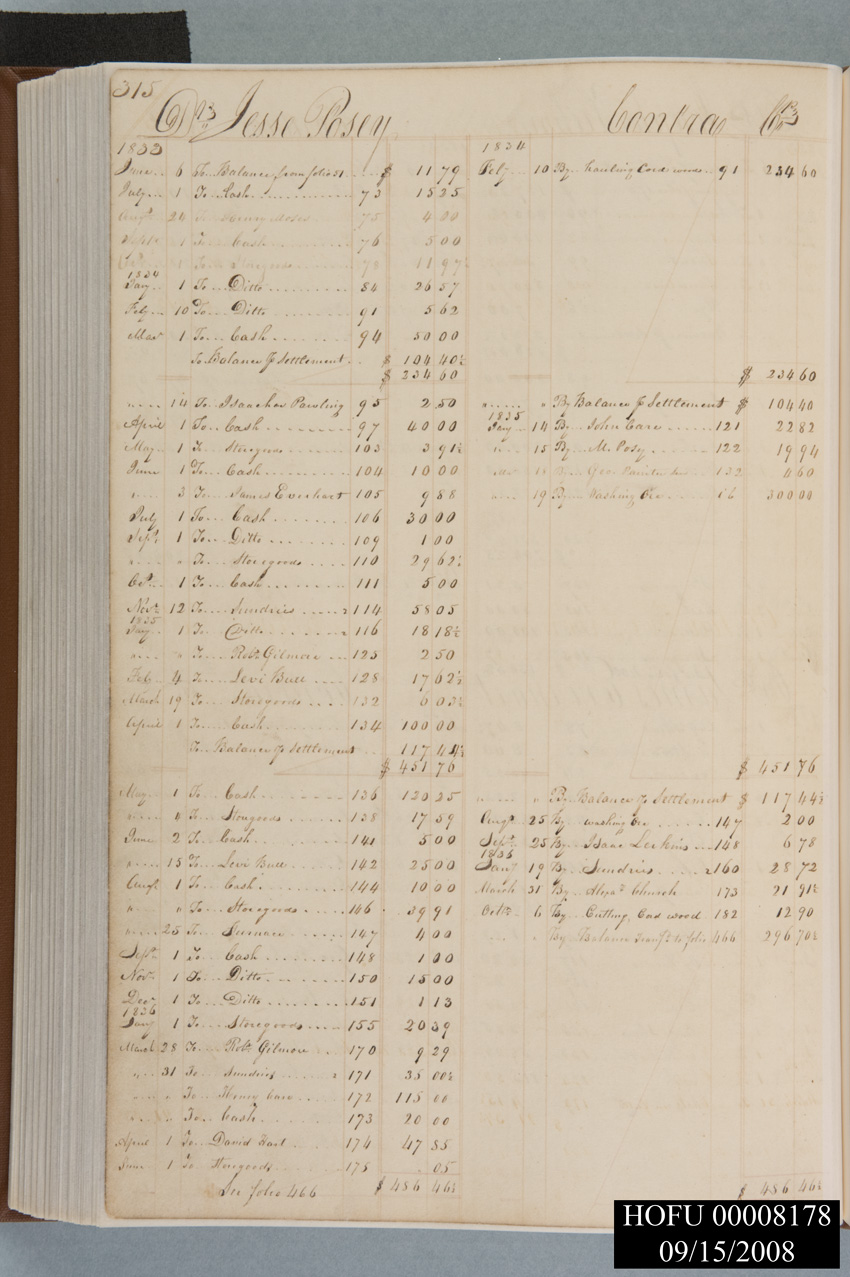 315
Drs Jesse Posey Contra Crs
1833
June 6 To Balance from folio 51 $ 11 79
July 1 To Cash 73 15 25
Augt 24 To Henry Moses 75 4 00
Septr 1 To Cash 76 5 00
78 11 97½
1834
Jany 1 To Ditto 84 26 57
Feby 10 To Ditto 91 5 62
Mar 1 To Cash 94 50 00
To Balance pr Settlement $ 104 40½
$ 234 60
" 14 To Isaachar Pawling 95 2 50
April 1 To Cash 97 40 00
May 1 To Storegoods 103 3 91½
June 1 To Cash 104 10 00
" 3 To James Everhart 105 9 88
July 1 To Cash 106 30 00
Sept. 1 To Ditto 109 1 00
" " To Storegoods 110 29 62½
Oct. 1 To Cash 111 5 00
Novr 12 To Sundries 114 58 05
1835
Jany 1 To Ditto 116 18 18½
" " To Robt Gilmore 125 2 50
Feb 4 To Levi Bull 128 17 62½
March 19 To Storegoods 132 6 03½
April 1 To Cash 134 100 00
To Balance pr Settlement 117 44½
$ 451 76
May 1 To Cash 136 120 25
" 4 To Storegoods 138 17 59
June 2 To Cash 141 5 00
" 15 To Levi Bull 142 25 00
Augt 1 To Cash 144 10 00
" " To Storegoods 146 39 91
" 25 To Furnace 147 4 00
Sept. 1 To Cash 148 1 00
Novr 1 To Ditto 150 15 00
Decr 1 To Ditto 151 1 13
1836
Jany 1 To Storegoods 155 20 39
March 28 To Robt Gilmore 170 9 29
" 31 To Sundries 171 35 00½
" " To Henry Care 172 115 00
" " To Cash 173 20 00
April 1 To David Hart 174 47 85
June 1 To Storegoods 178 05
See folio 466 $ 486 46½
1834
Feby 10 By hauling Cord wood 91 234 60
$ 234 60
" " By Balance pr Settlement $ 104 40
1835
Jany 14 By John Care 121 22 82
" 15 By M. Posy 122 19 94
By Geo. 132 4 60
" 19 By Washing Ore 300 00
$ 451 76
" " By Balance pr Settlement $ 117 44½
Augt 25 By washing Ore 147 2 00
Sept. 25 By Isaac 148 6 78
1836
Jany 19 By Sundries 160 28 72
March 31 By Alexr Church 173 21 91½
Octr 6 By Cutting Cord wood 182 12 90
" " By Balance Transfd to folio 466 296 70½
$ 486 46½
HOFU 00008178
09/15/2008